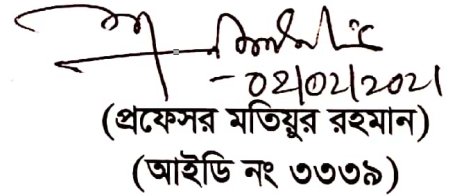 -02/02/2021
(প্রফেসর মতিয়ুর রহমান)
(আইডি নং ৩৩৩৯)